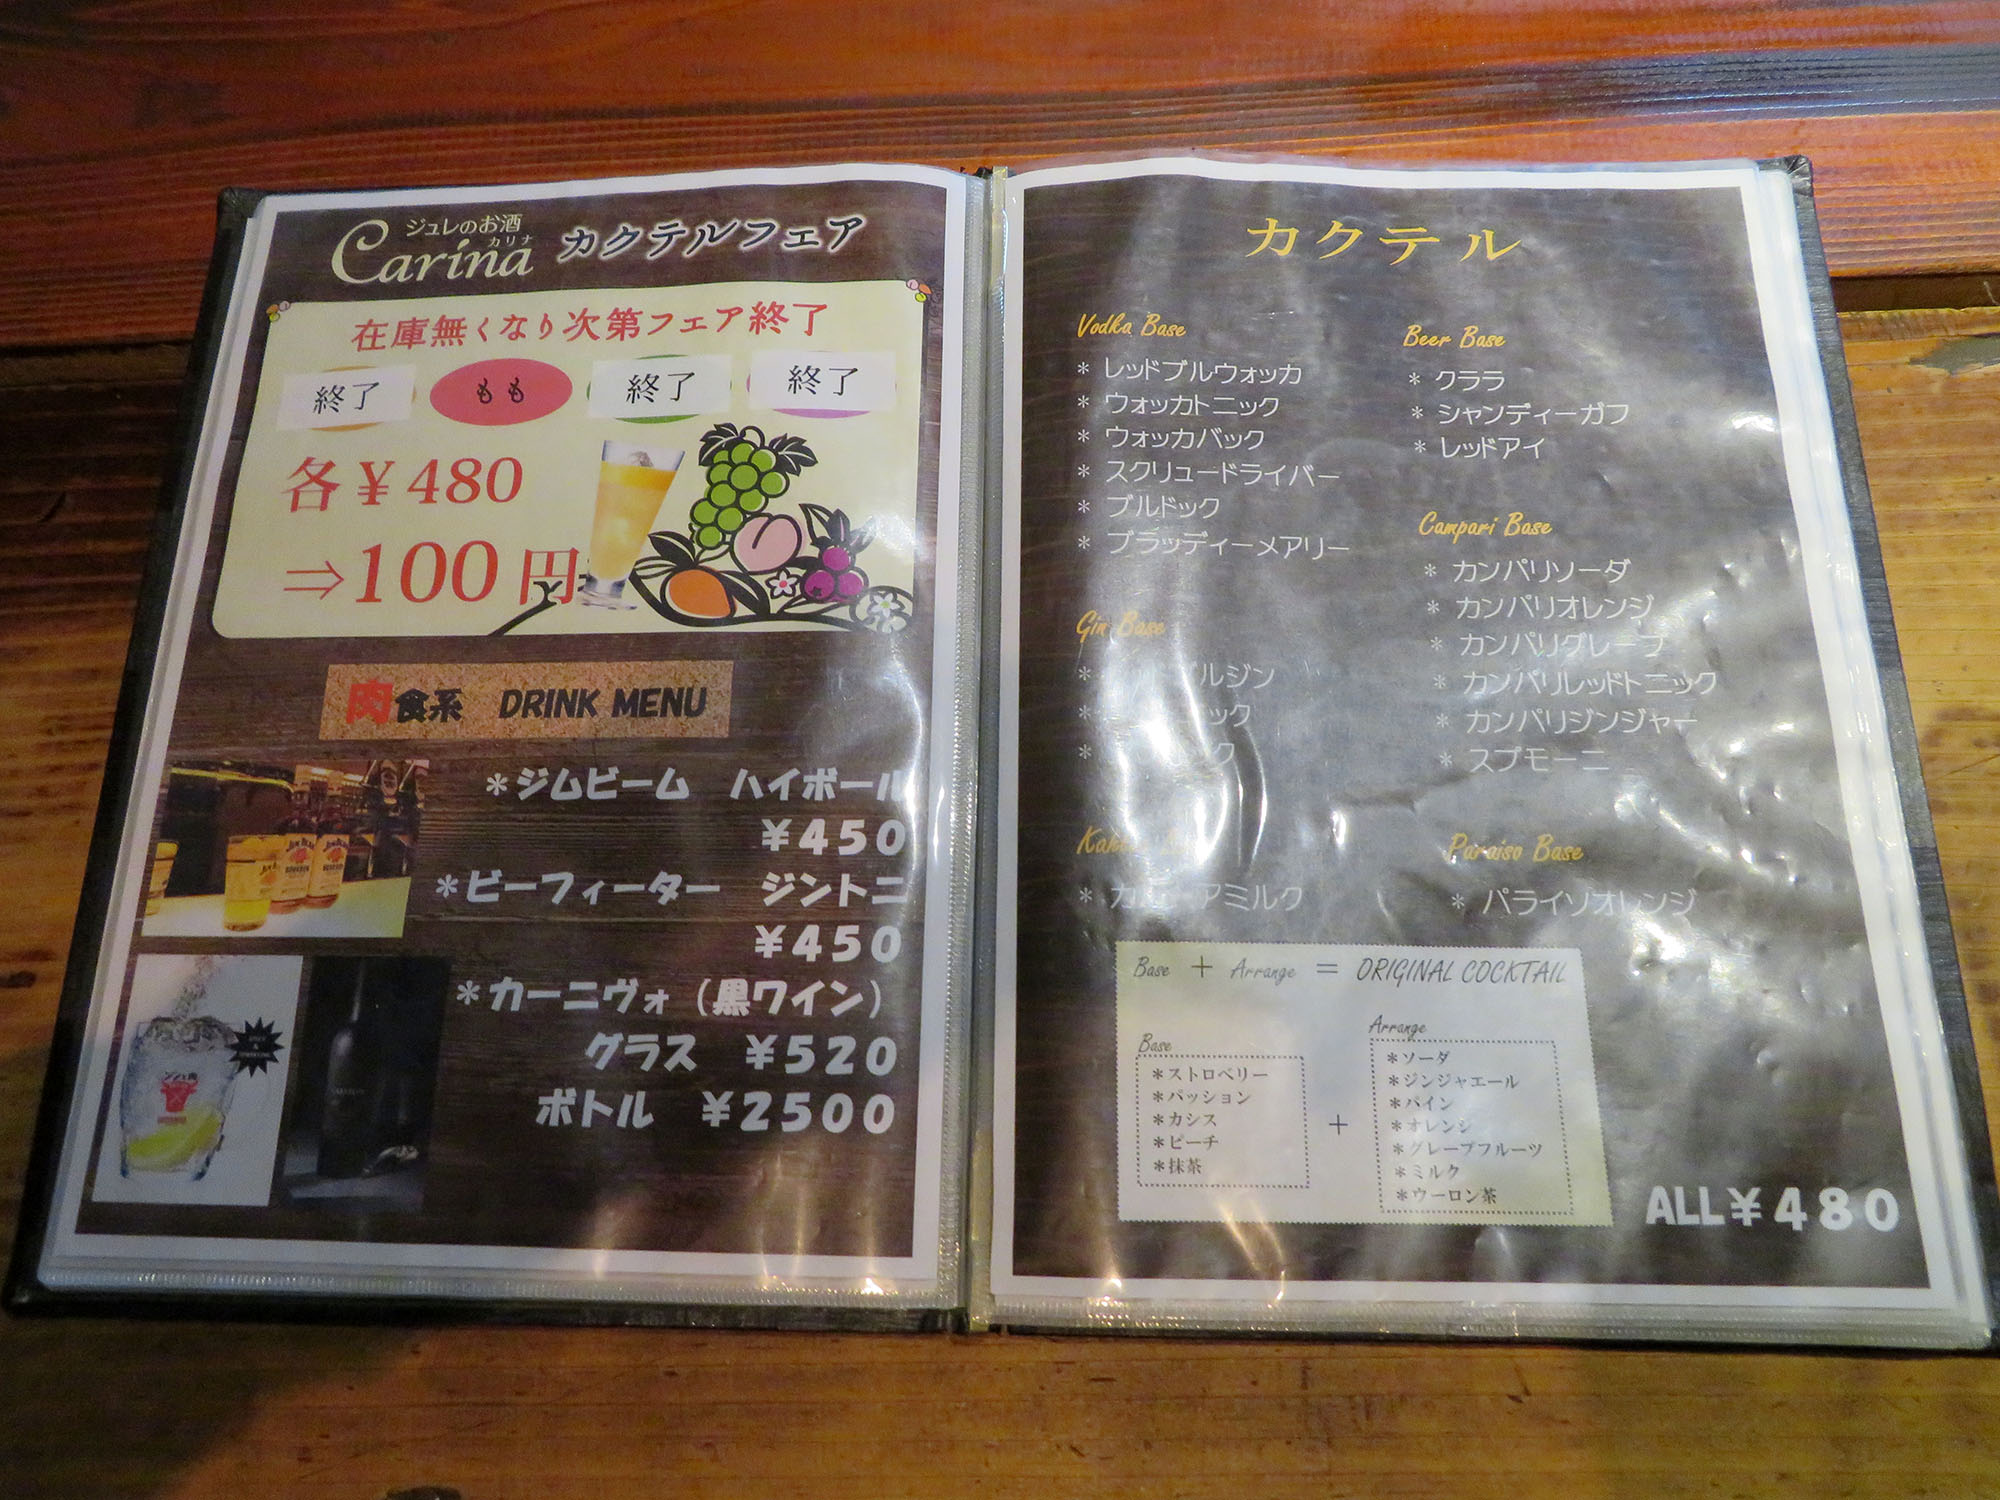 ジュレのお酒
カリナ
Carina カクテルフェア
在庫無くなり次第フェア終了
終了 もも 終了 終了
各¥480
⇒100円
肉食系 DRINK MENU
*ジムビーム ハイボール
¥450
*ビーフィーター ジントニ
¥450
*カーニヴォ(黒ワイン)
グラス ¥520
ボトル ¥2500
カクテル
Vodka Base
* レッドブルウォッカ
* ウォッカトニック
* ウォッカバック
* スクリュードライバー
* ブルドック
* ブラッディーメアリー
Gin Base
* ルジン
* ック
* ク
* ミルク
Beer Base
* クララ
* シャンディーガフ
* レッドアイ
Campari Base
* カンパリソーダ
* カンパリオレンジ
* カンパリグレープ
* カンパリレッドトニック
* カンパリジンジャー
* スプモーニ
Paraiso Base
* パライソオレンジ
Base + Arrange = ORIGINAL COCKTAIL
Base
*ストロベリー
*パッション
*カシス
*ピーチ
*抹茶
+
Arrange
*ソーダ
*ジンジャエール
*パイン
*オレンジ
*グレープフルーツ
*ミルク
*ウーロン茶
ALL¥480